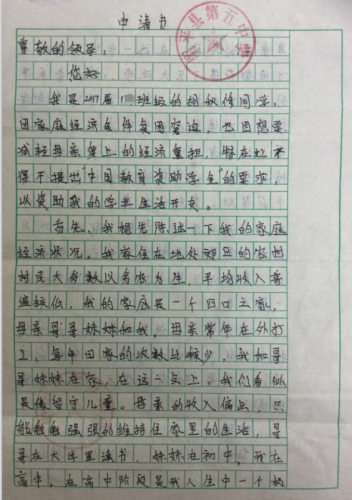 申请书
县第五中学
尊敬的领导：
您好
我是2017届1班级的同学，
因家庭经济条件贫困窘迫，也因想要
减轻母亲身上的经济重担，特在此不
得不提出中国教育资助学生"的要求，
以资助我的学业生活开支。
首先，我想先陈述一下我的家庭
经济状况。我家住在地处郊区的农村
村民大多数以务农为生，平均收入普
遍较低，我的家庭是一个四口之家，
母亲哥哥妹妹和我。母亲常年在外打
工，每年回家的次数比较少。我和哥
哥妹妹在家，在这一点上，我们看似
是像留守儿童。母亲的收入偏点，只
能勉勉强强的维持住家里的生活，哥
哥在大学里读书，妹妹在初中，我在
高中，在高中阶段是我人生中一个极